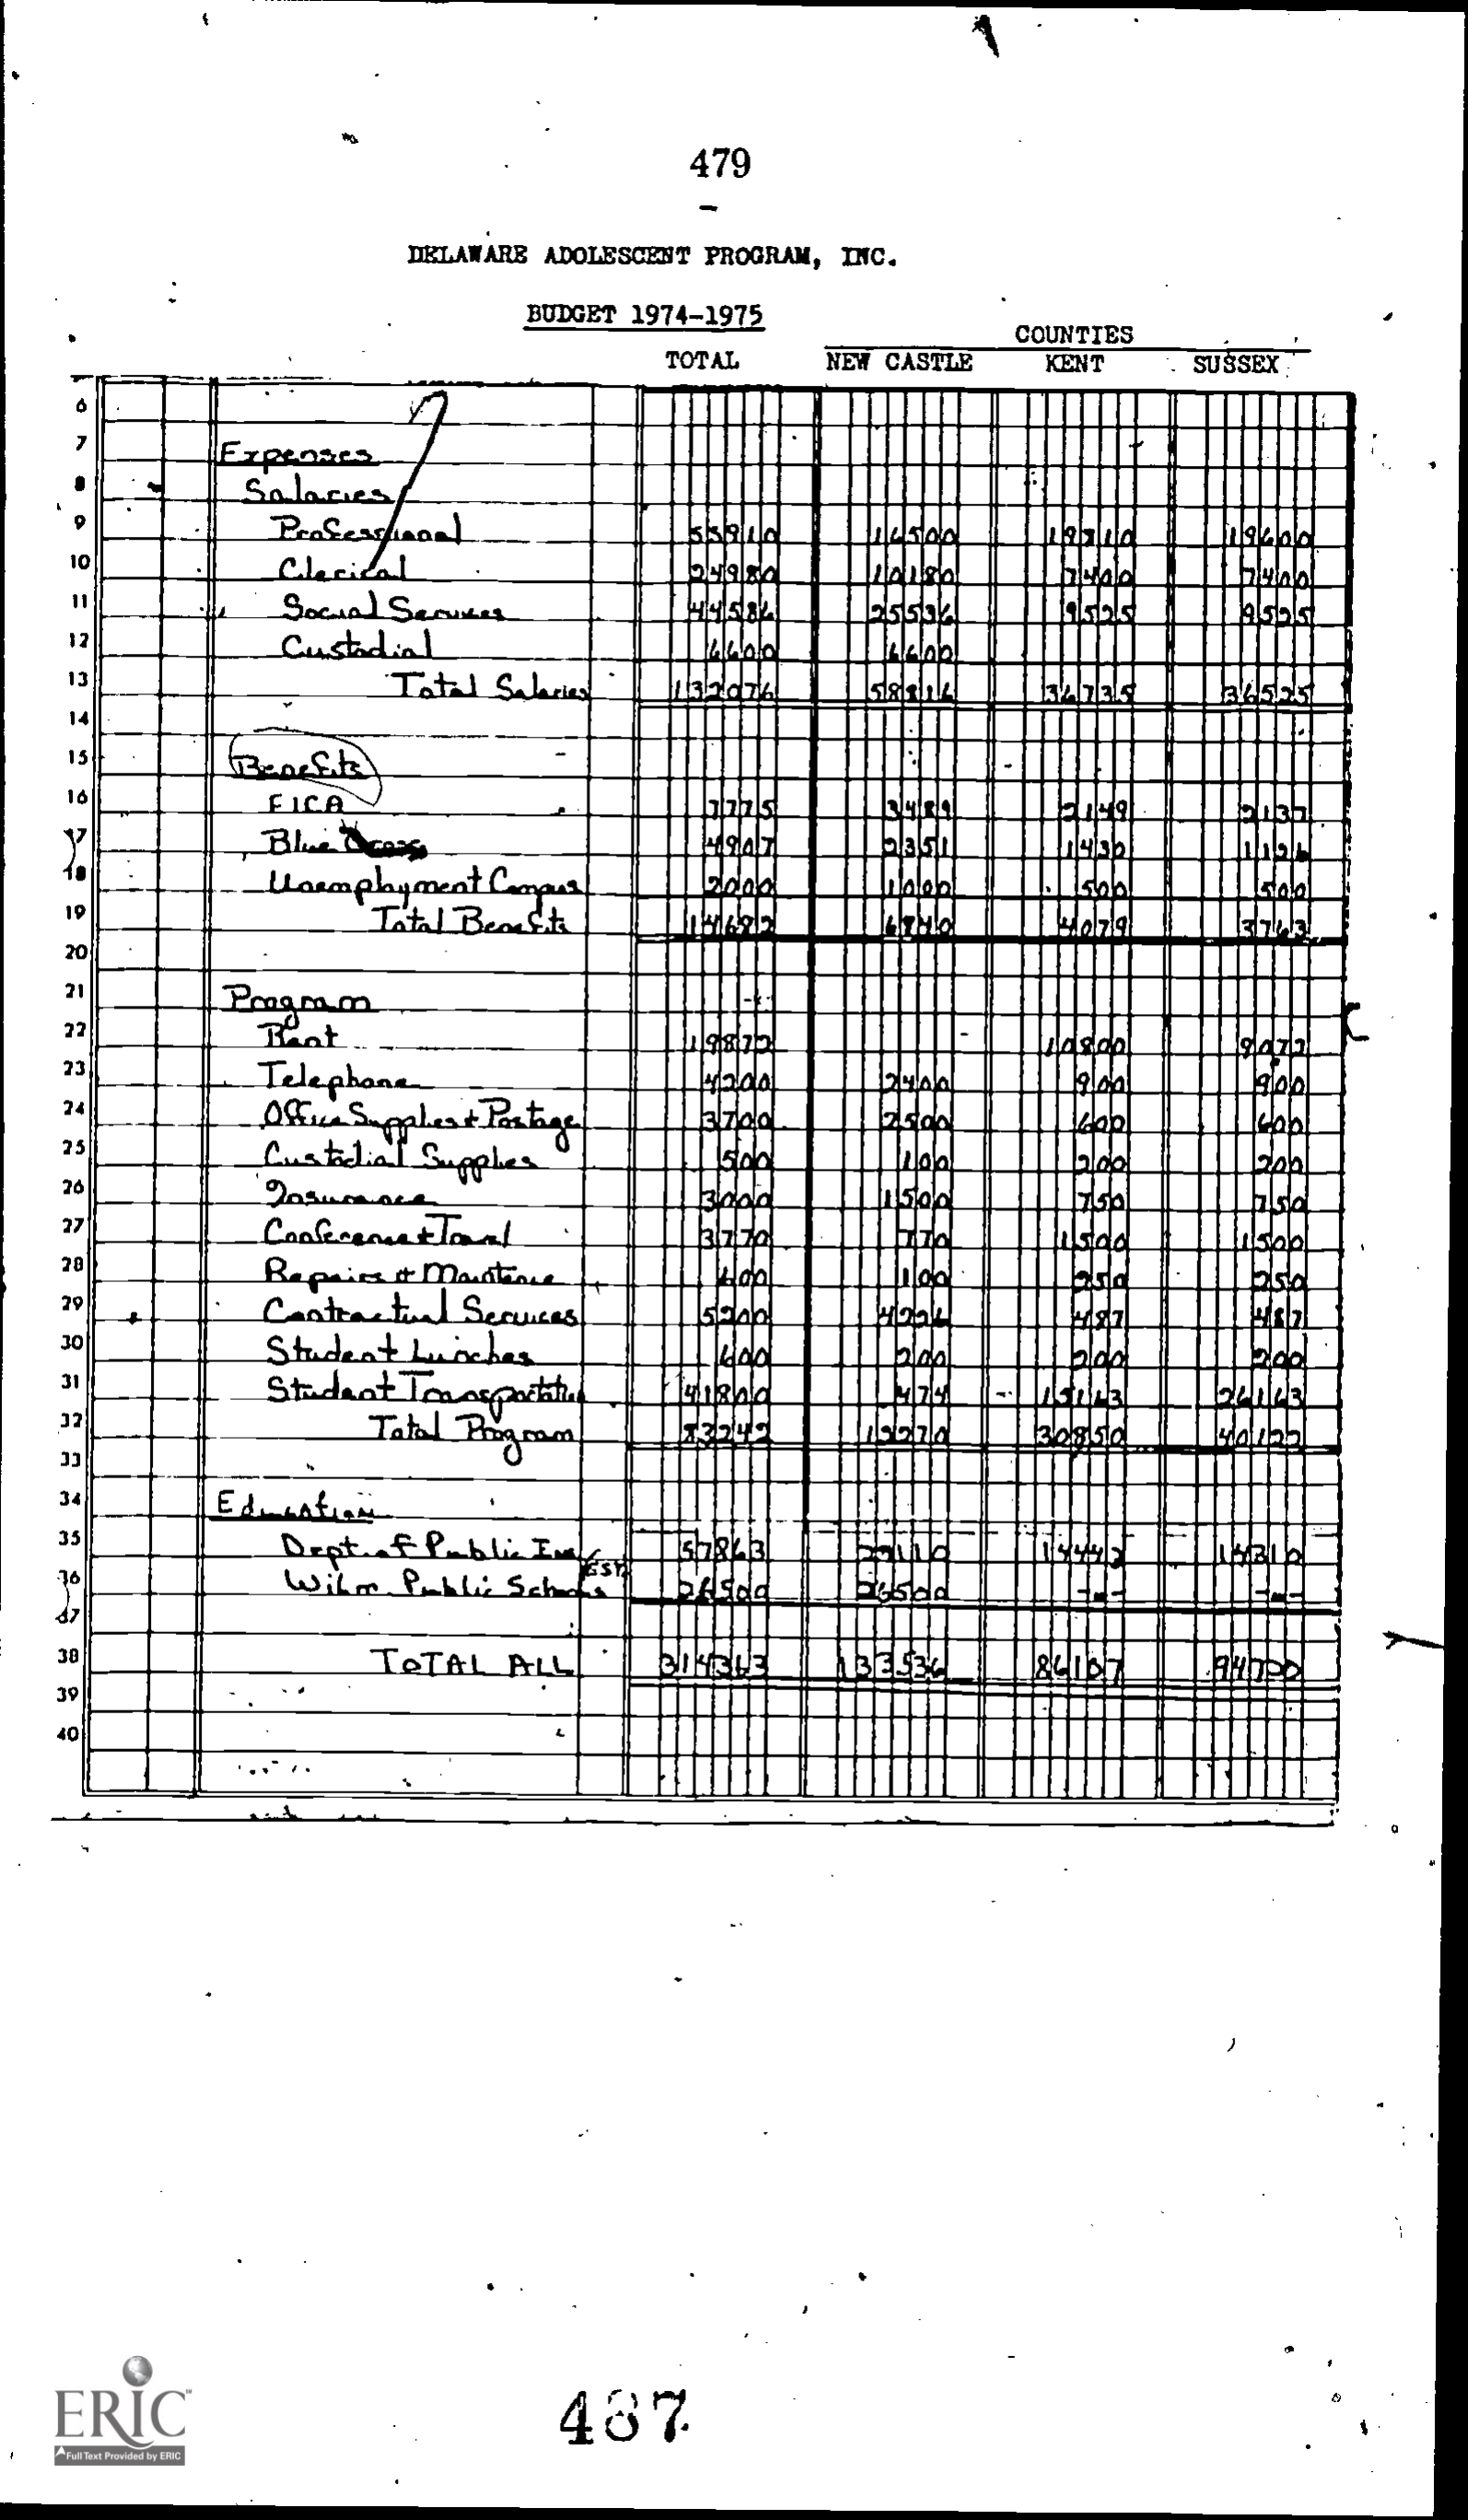 479
DELAWARE ADOLESCENT PROGRAM, INC.
BUDGET 1974-1975
COUNTIES
TOTAL NEW CASTLE KENT SUSSEX
6
7 Expenses
8 Salaries
9 Professional 55910 16500 19810 19600
10 Clerical 24980 10180 7400 7400
11 Social Services 44586 25536 9525 9525
12 Custodial 6600 6600
13 Total Salaries 132076 58816 36735 36525
14
15 Benefits
16 FICA 7775 3489 2149 2137
17 Blue Cross 4907 2351 1430 1126
18 Unemployment Compus 2000 1000 500 500
19 Total Benefits 14682 6840 4079 3763
20
21 Program
22 Rent 19872 10800 9072
23 Telephone 4200 2400 900 900
24 Office Supplies + Postage 3700 2500 600 600
25 Custodial Supplies 500 100 200 200
26 Insurance 3000 1500 750 750
27 Conference + Travel 3770 770 1500 1500
28 Repairs + Maintence 600 100 250 250
29 Contractual Services 5200 4226 487 487
30 Student Lunches 600 200 200 200
31 Student Transportation 41800 474 15163 26163
32 Total Program 83242 12270 30850 40122
33
34 Education
35 Dept. of Public Ins 57863 29110 14443 14310
36 Wilm. Public Schools Est. 26500 26500 --- ---
37
38 TOTAL ALL 314363 133536 86107 94720
39
40
ERIC
Full Text Provided by ERIC
487